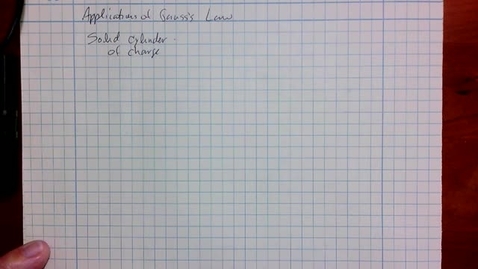 Applications of Gauss's Law
Solid cylinder
of charge